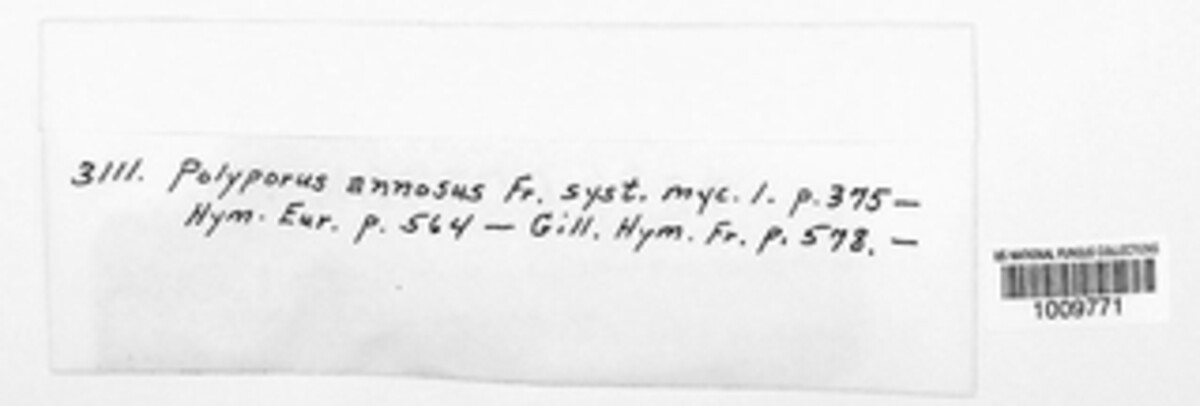 3111. Polyporus annosus Fr. syst. myc. 1. p. 375 —
Hym. Eur. p. 564 — Gill. Hym. Fr. p. 578. —
US NATIONAL FUNGUS COLLECTIONS
1009771